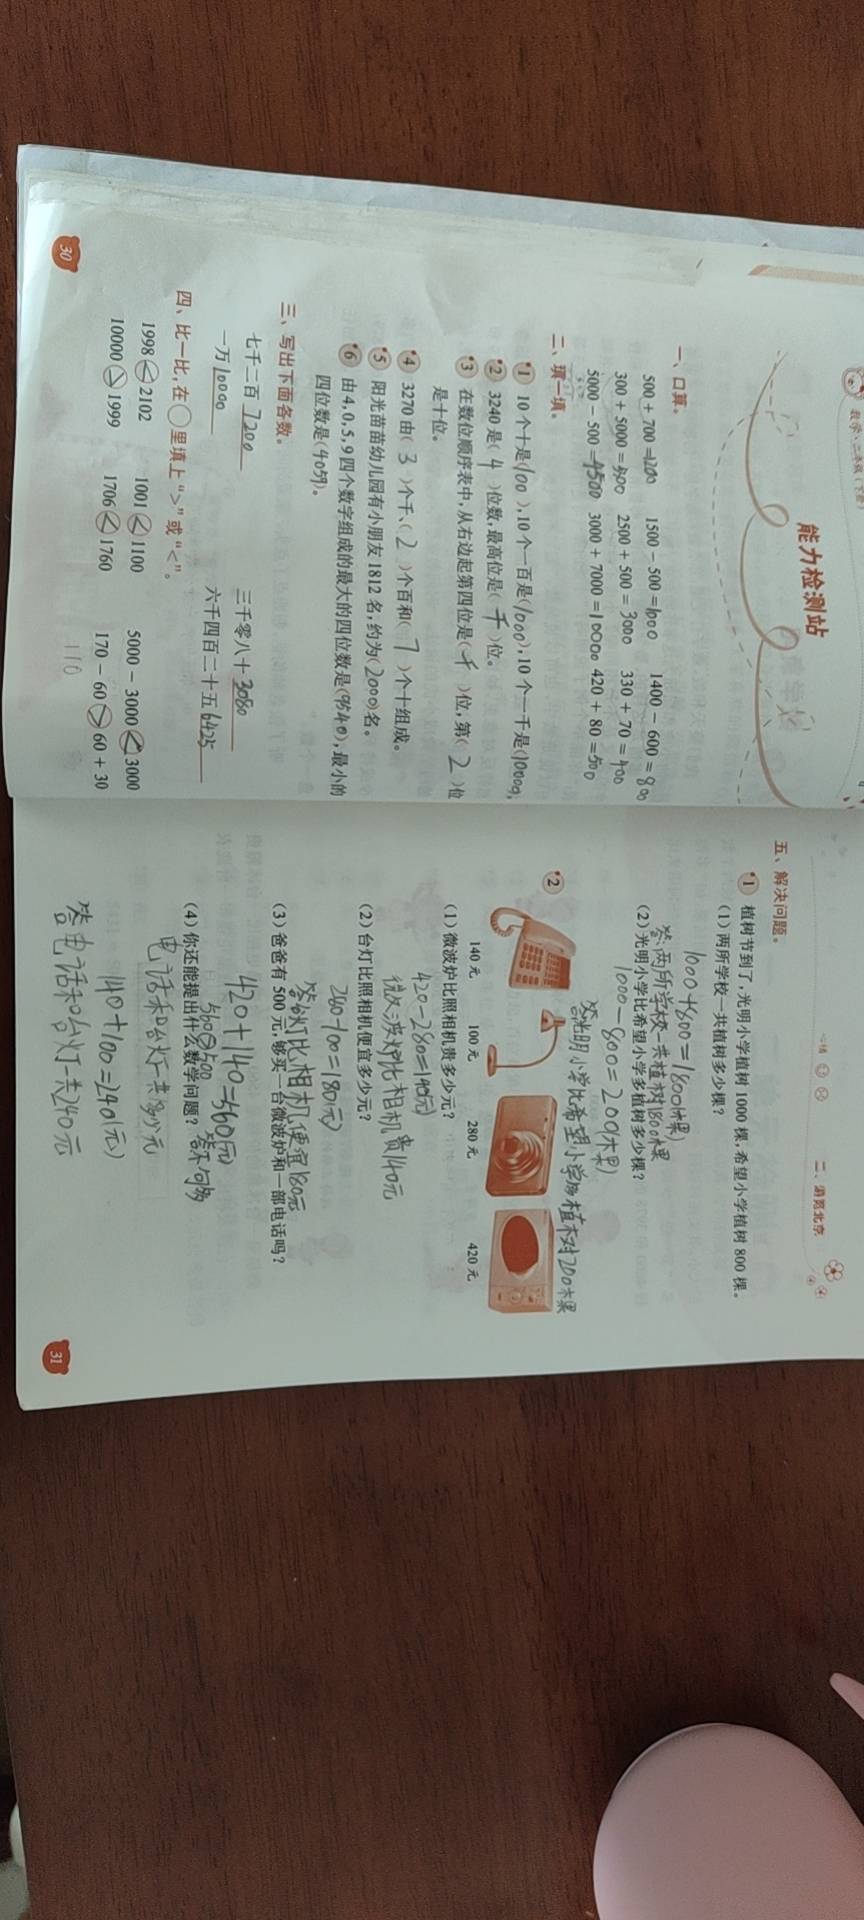 数学·二年级(下册)
能力检测站
一、口算。
500+700=1200 1500-500=1000 1400-600=800
300+5000=5300 2500+500=3000 330+70=400
5000-500=4500 3000+7000=10000 420+80=500
二、填一填。
1 10个十是(100),10个一百是(1000),10个一千是(10000)。
2 3240是(4)位数,最高位是(千)位。
3 在数位顺序表中,从右边起第四位是(千)位,第(2)位
是十位。
4 3270由(3)个千、(2)个百和(7)个十组成。
5 阳光苗苗幼儿园有小朋友1812名,约为(2000)名。
6 由4,0,5,9四个数字组成的最大的四位数是(9540),最小的
四位数是(4059)。
三、写出下面各数。
七千二百 7200 三千零八十 3080
一万 10000 六千四百二十五 6425
四、比一比,在○里填上“>”或“<”。
1998<2102 1001<1100 5000-3000<3000
10000>1999 1706<1760 170-60>60+30
110
30
心情
二、游览北京
五、解决问题。
1 植树节到了,光明小学植树1000棵,希望小学植树800棵。
(1)两所学校一共植树多少棵?
1000+800=1800(棵)
答:两所学校一共植树1800棵
(2)光明小学比希望小学多植树多少棵?
1000-800=200(棵)
答光明小学比希望小学多植树200棵
2
140元 100元 280元 420元
(1)微波炉比照相机贵多少元?
420-280=140(元)
微波炉比相机贵140元
(2)台灯比照相机便宜多少元?
280-100=180(元)
答台灯比相机便宜180元
(3)爸爸有500元,够买一台微波炉和一部电话吗?
420+140=560(元)
560>500 答不够
(4)你还能提出什么数学问题?
电话和台灯一共多少元
140+100=240(元)
答电话和台灯一共240元
31